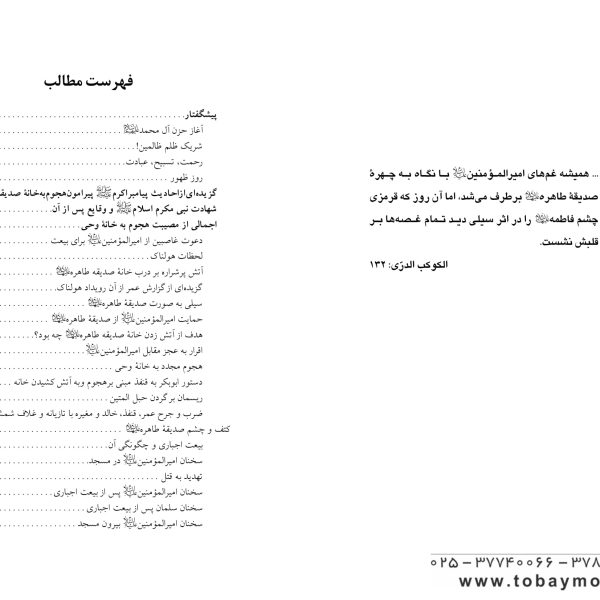 ... همیشه غم‌های امیرالمـؤمنین ﷺ بـا نگـاه بـه چـهرهٔ
صدیقهٔ طاهره برطرف می‌شد، اما آن روز که قرمزی
چشم فاطمه را در اثر سیلی دیـد تـمام غـصه‌ها بـر
قلبش نشست.
الکوکب الدرّی: ۱۳۲
۰۲۵ – ۳۷۷۴۰۰۶۶ – ۳۷۸
www.tobaymo
فهرست مطالب
پیشگفتار
آغاز حزن آل محمد
شریک ظلم ظالمین!
رحمت، تسبیح، عبادت
روز ظهور
گزیده‌ای از احادیث پیامبر اکرم ﷺ پیرامون هجوم به خانهٔ صدیقه
شهادت نبی مکرم اسلام ﷺ و وقایع پس از آن
اجمالی از مصیبت هجوم به خانهٔ وحی
دعوت غاصبین از امیرالمؤمنین برای بیعت
لحظات هولناک
آتش پرشراره بر درب خانهٔ صدیقه طاهره
گزیده‌ای از گزارش عمر از آن رویداد هولناک
سیلی به صورت صدیقهٔ طاهره
حمایت امیرالمؤمنین از صدیقهٔ طاهره
هدف از آتش زدن خانهٔ صدیقه طاهره چه بود؟
اقرار به عجز مقابل امیرالمؤمنین
هجوم مجدد به خانهٔ وحی
دستور ابوبکر به قنفذ مبنی برهجوم وبه آتش کشیدن خانه
ریسمان بر گردن حبل المتین
ضرب و جرح عمر، قنفذ، خالد و مغیره با تازیانه و غلاف
کتف و چشم صدیقهٔ طاهره
بیعت اجباری و چگونگی آن
سخنان امیرالمؤمنین در مسجد
تهدید به قتل
سخنان امیرالمؤمنین پس از بیعت اجباری
سخنان سلمان پس از بیعت اجباری
سخنان امیرالمؤمنین بیرون مسجد